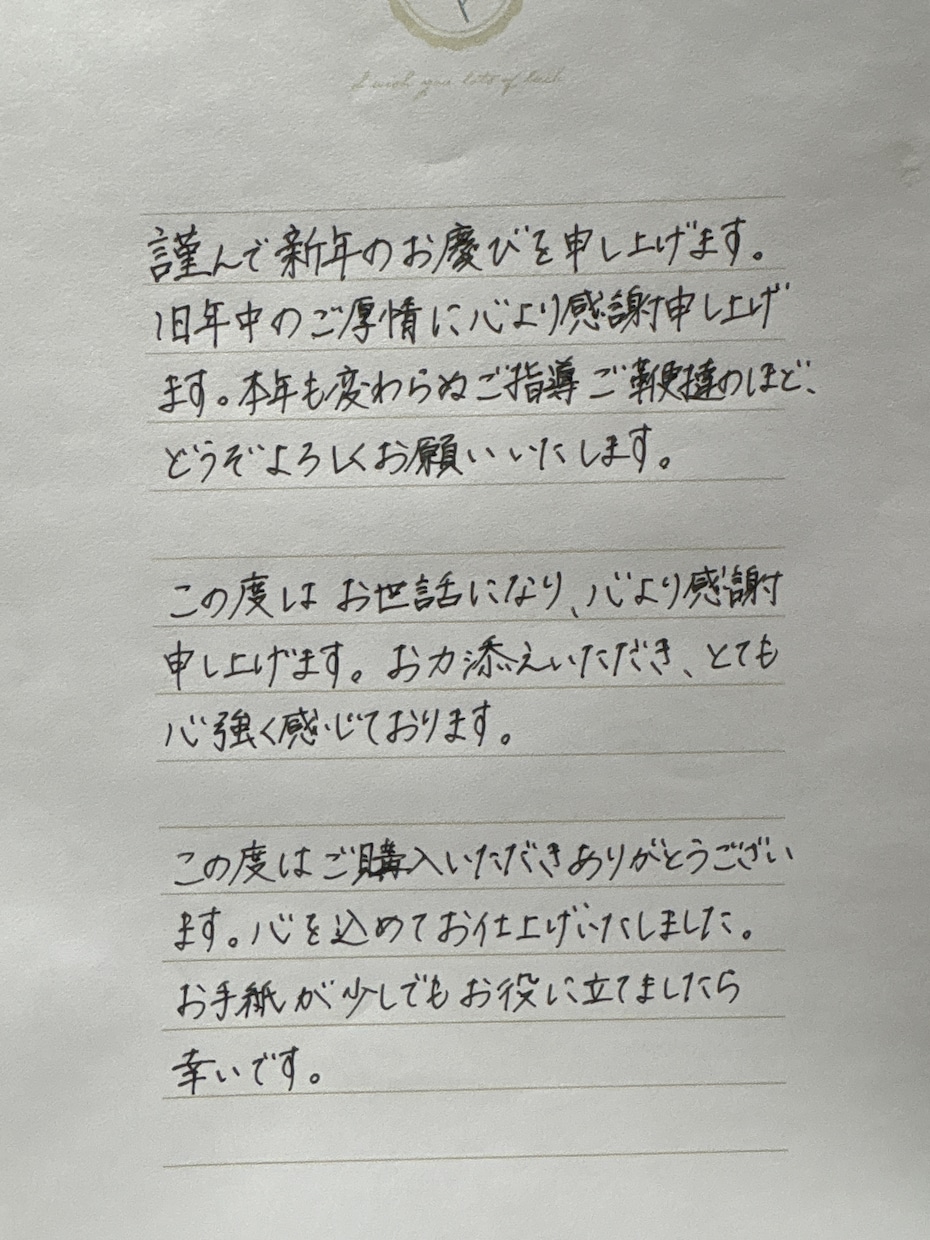 I wish you lots of luck
謹んで新年のお慶びを申し上げます。
旧年中のご厚情に心より感謝申し上げ
ます。本年も変わらぬご指導ご鞭撻のほど、
どうぞよろしくお願いいたします。
この度はお世話になり、心より感謝
申し上げます。お力添えいただき、とても
心強く感じております。
この度はご購入いただきありがとうござい
ます。心を込めてお仕上げいたしました。
お手紙が少しでもお役に立てましたら
幸いです。